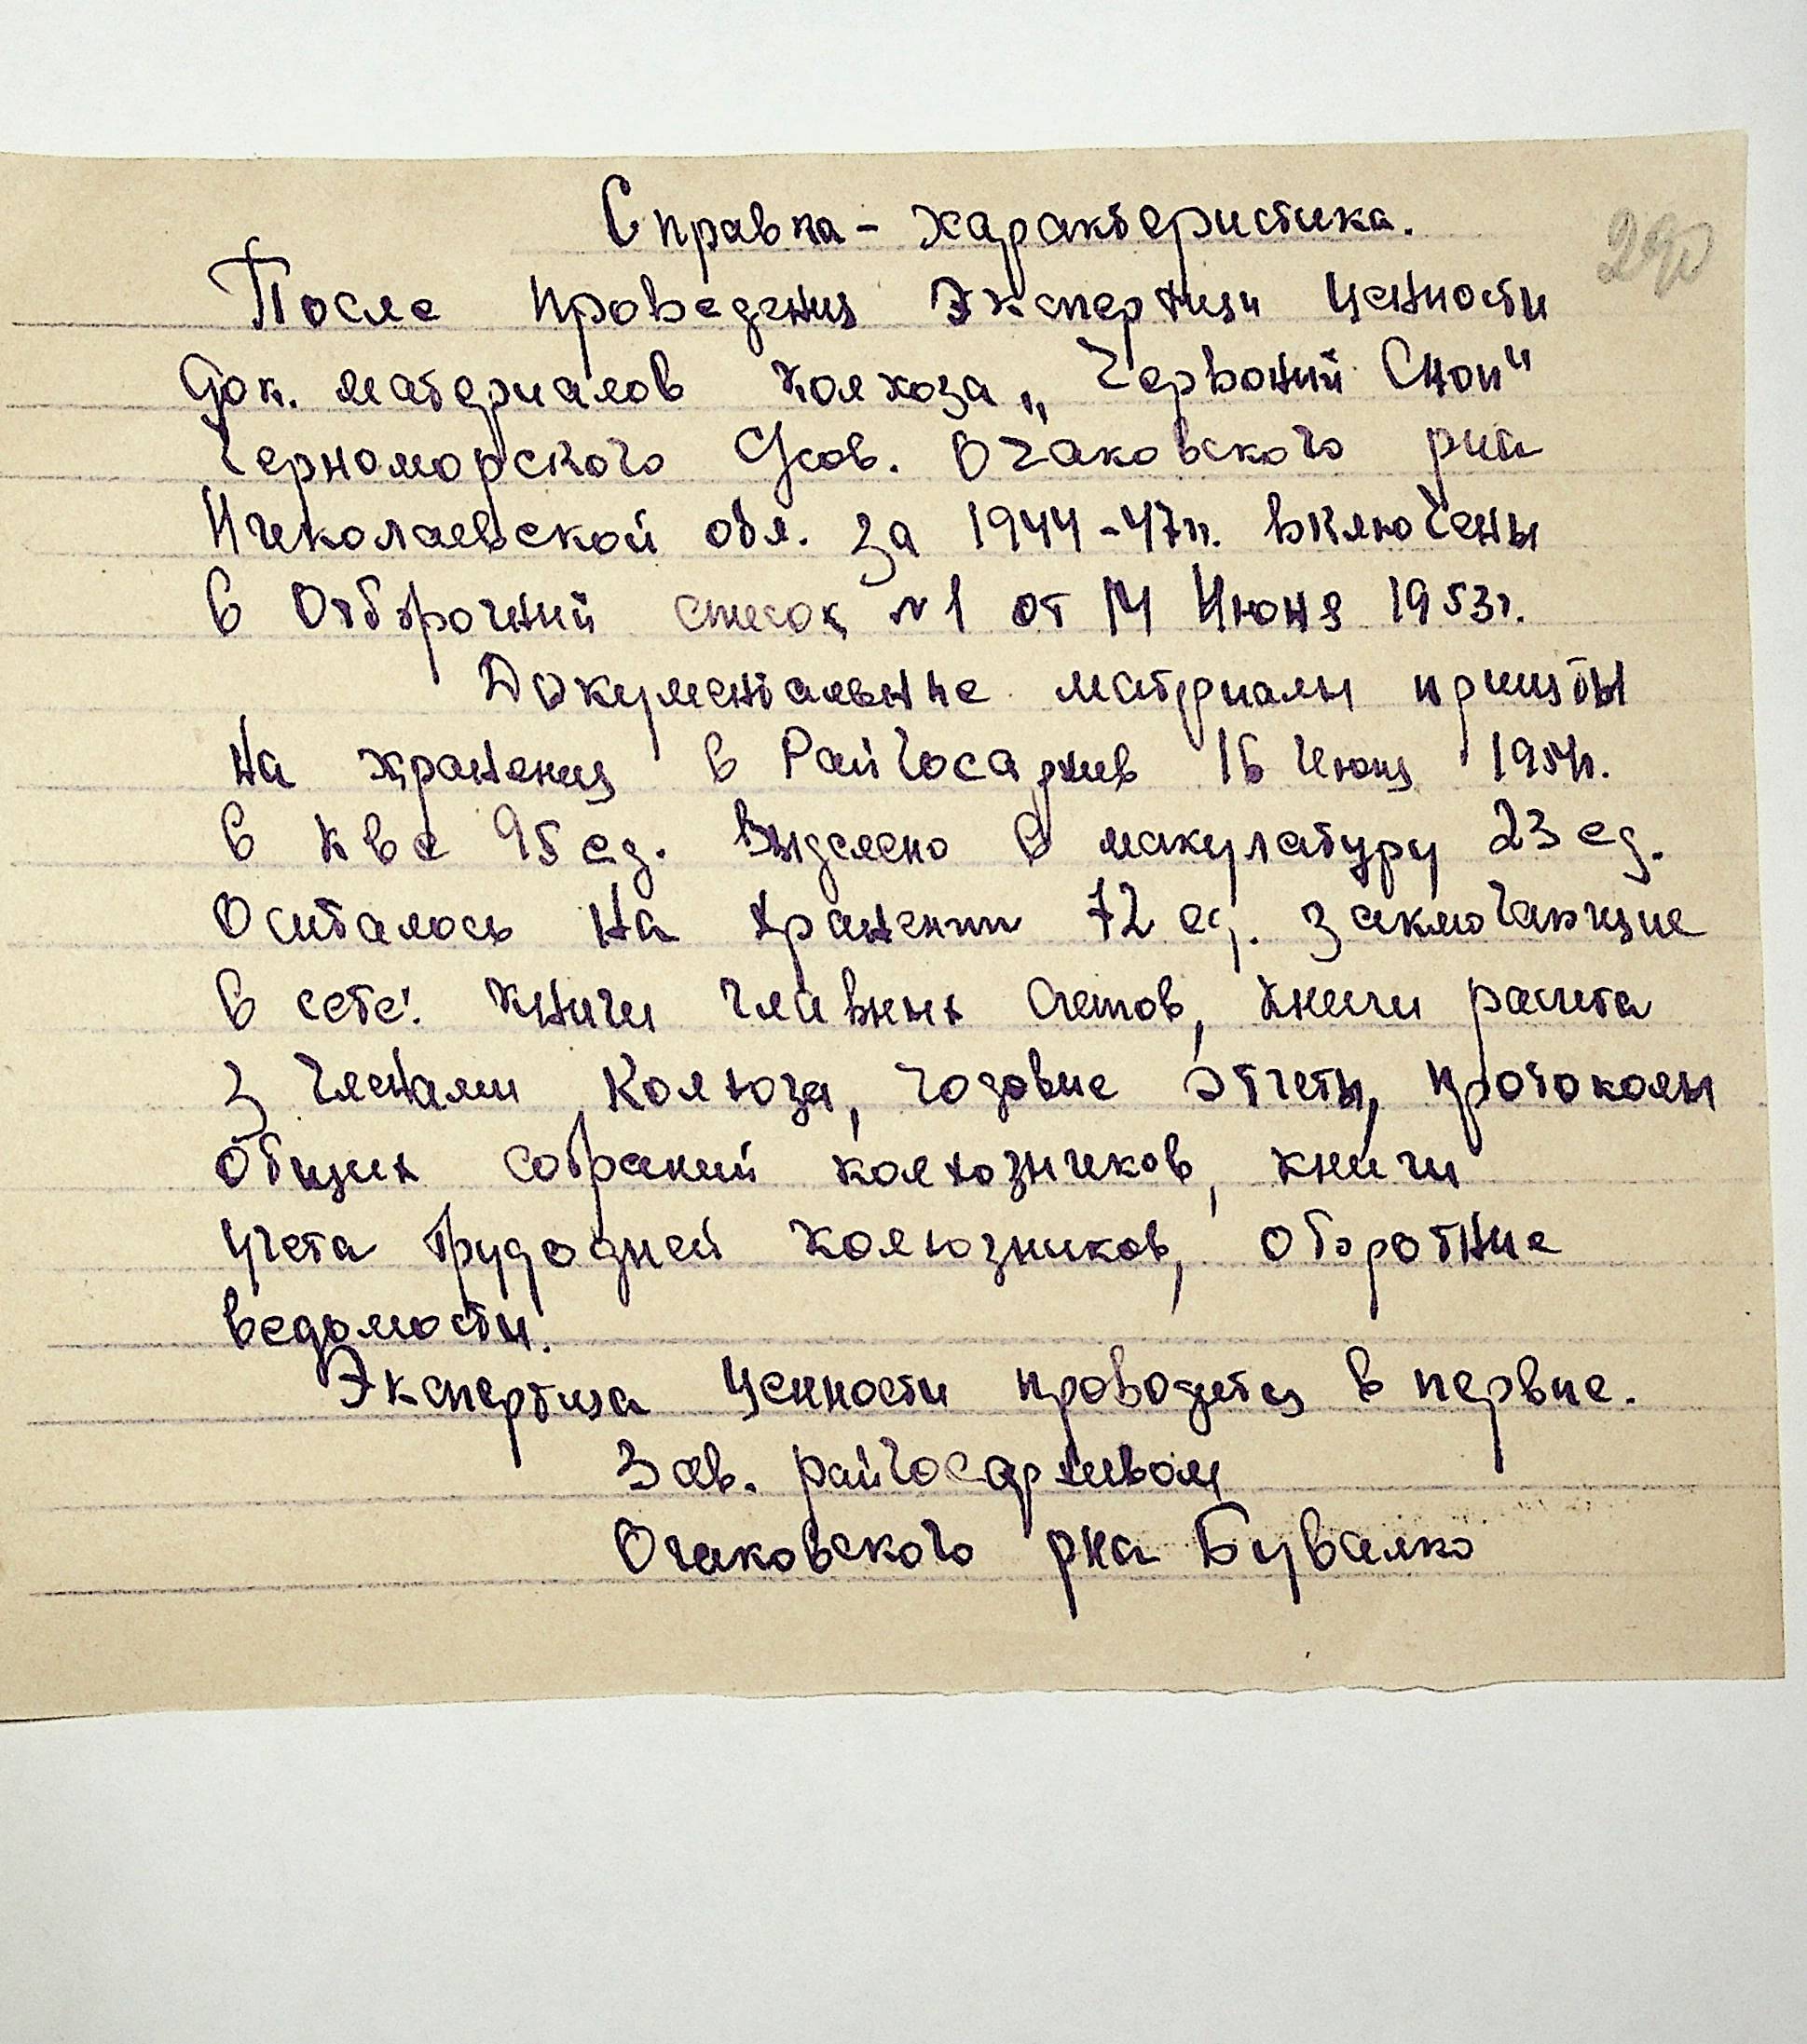 Справка - характеристика.
290
После проведения Экспертизи ценности
док. материалов колхоза „Червоний Сноп"
Черноморского с/сов. Очаковского р-на
Николаевской обл. за 1944-47гг. включены
в Отборочний список №1 от 14 Июня 1953г.
Документальние материалы приняты
на хранения в Райгосархив 16 Июня 1954г.
в к-ве 95 ед. Выделено в макулатуру 23 ед.
Осталось на хранении 72 ед. заключающие
в себе: книги главных счетов, книги расчета
з членами колхоза, годовие отчеты, протоколы
общих собраний колхозников, книги
учета трудодней колхозников, оборотние
ведомости.
Экспертиза ценности проводится в первие.
Зав. райгосархивом
Очаковского р-на Бувалко